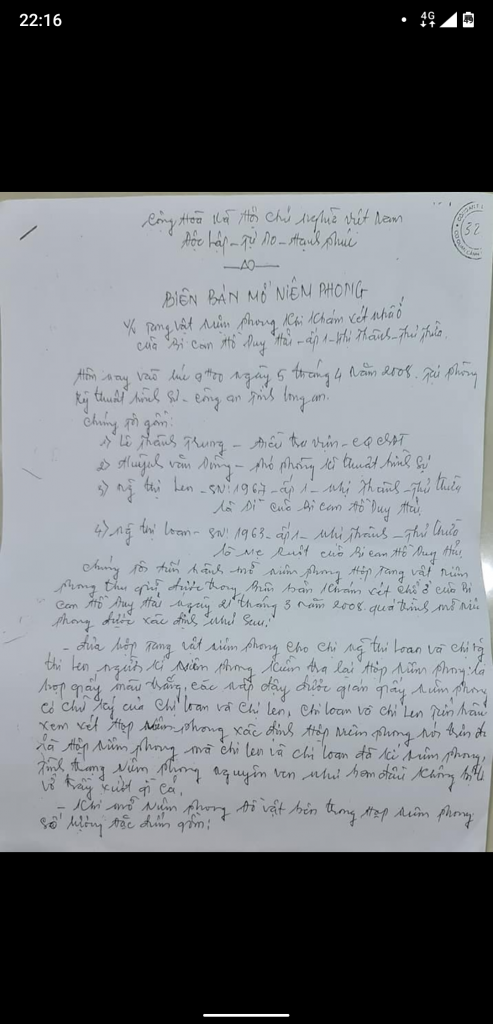 22:16
4G
Cộng Hoà Xã Hội Chủ Nghĩa Việt Nam
Độc Lập - Tự Do - Hạnh Phúc
32
BIÊN BẢN MỞ NIÊM PHONG
V/v Tang vật niêm phong khi khám xét nhà ở
của Bị can Hồ Duy Hải - ấp 1 - Nhị Thành - Thủ Thừa.
Hôm nay vào lúc 9h00 ngày 5 tháng 4 năm 2008. Tại phòng
kỹ thuật hình sự - Công an tỉnh Long An.
Chúng tôi gồm:
1) Lê Thành Trung - Điều tra viên - CQCSĐT
2) Huỳnh Văn Dũng - phó phòng kĩ thuật hình sự
3) Ng thị Len - SN: 1967 - ấp 1 - Nhị Thành - Thủ Thừa
là Dì của Bị can Hồ Duy Hải.
4) Ng thị Loan - SN: 1963 - ấp 1 - Nhị Thành - Thủ Thừa
là mẹ ruột của Bị can Hồ Duy Hải.
Chúng tôi tiến hành mở niêm phong Hộp tang vật niêm
phong thu giữ được trong Biên bản khám xét chỗ ở của Bị
can Hồ Duy Hải ngày 21 tháng 3 năm 2008. quá trình mở niêm
phong được xác định như sau:
- Đưa hộp tang vật niêm phong cho chị Ng thị Loan và chị Ng
thị Len người kí niêm phong kiểm tra lại Hộp niêm phong là
hộp giấy màu trắng, các nắp đậy được gián giấy niêm phong
có chữ ký của chị Loan và chị Len, chị Loan và chị Len tiến hành
xem xét Hộp niêm phong xác định Hộp niêm phong nói trên đã
là Hộp niêm phong mà chị Len và chị Loan đã kí niêm phong,
tình trạng niêm phong nguyên vẹn như ban đầu không bị
vỡ trầy xướt gì cả.
- Khi mở niêm phong đồ vật bên trong Hộp niêm phong
số lượng đặc điểm gồm: